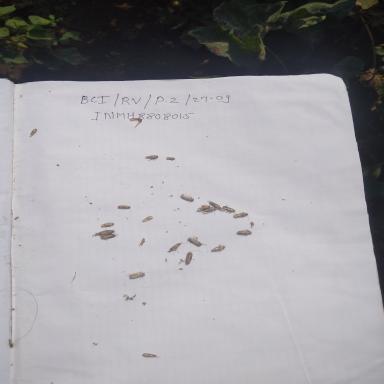 BCI/RV/P.2/27-09
INMH8808015